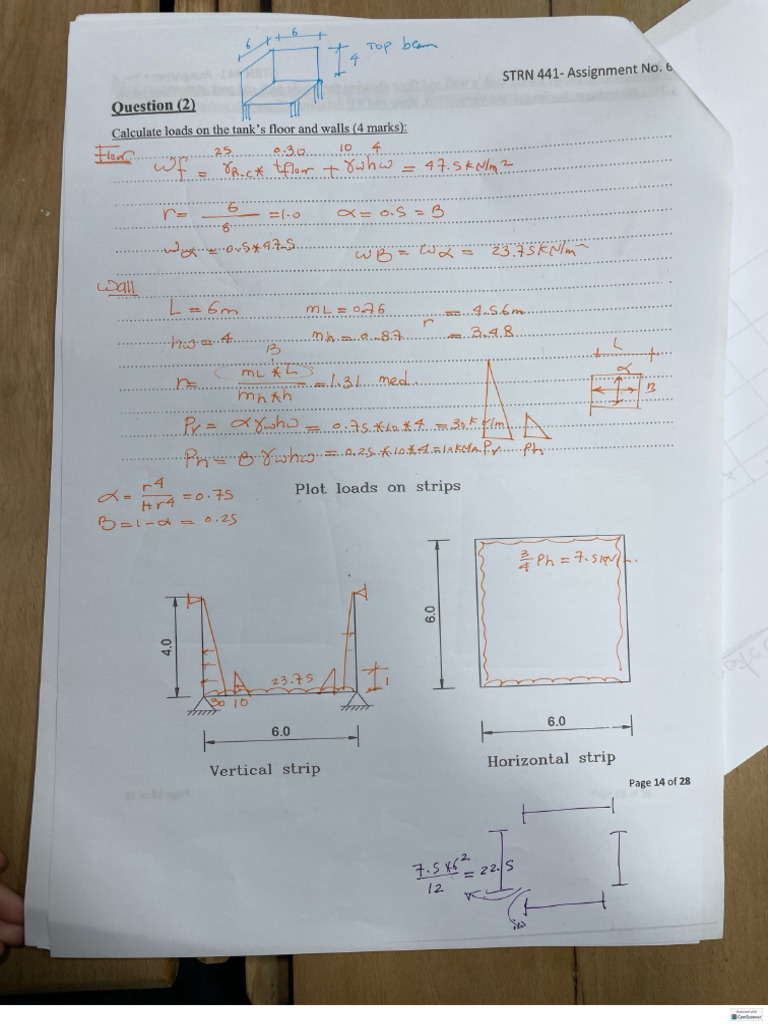 6 6
4 Top beam
STRN 441- Assignment No. 6
Question (2)
Calculate loads on the tank's floor and walls (4 marks):
Floor
25 0.30 10 4
wf = γR.C * tfloor + γwhw = 47.5 kN/m2
r = 6/6 = 1.0 α = 0.5 = B
wα = 0.5*47.5 wB = wα = 23.75 kN/m
Wall
L = 6m mL = 0.76 = 4.56m
hw = 4 mh = 0.87 r = 3.48
r = mL*L / mh*h = 1.31 med.
L
α
B
Pv = αγwhw = 0.75*10*4 = 30 kN/m
Ph = Bγwhw = 0.25*10*4 = 10 kN/m Pv Ph
α = r4 / 1+r4 = 0.75
B = 1-α = 0.25
Plot loads on strips
3/4 Ph = 7.5 kN/m
4.0
6.0
23.75
1
30 10
6.0
6.0
Vertical strip
Horizontal strip
Page 14 of 28
7.5*6² / 12 = 22.5
Scanned with
CamScanner